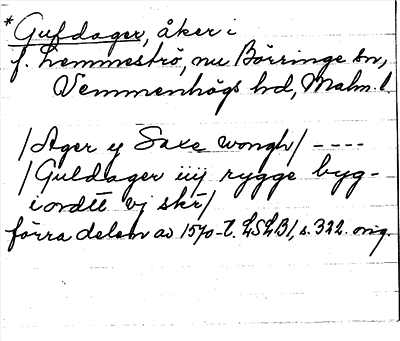 * Guldager, åker i
f. Lemmeströ, nu Börringe sn,
Vemmenhögs hd, Malm. l.
/Ager y Saxe wongh/ ----
/Guldager iiij rygge byg-
iordtt vj skr/
förra delen av 1570-t. LSLB1, s. 322. orig.